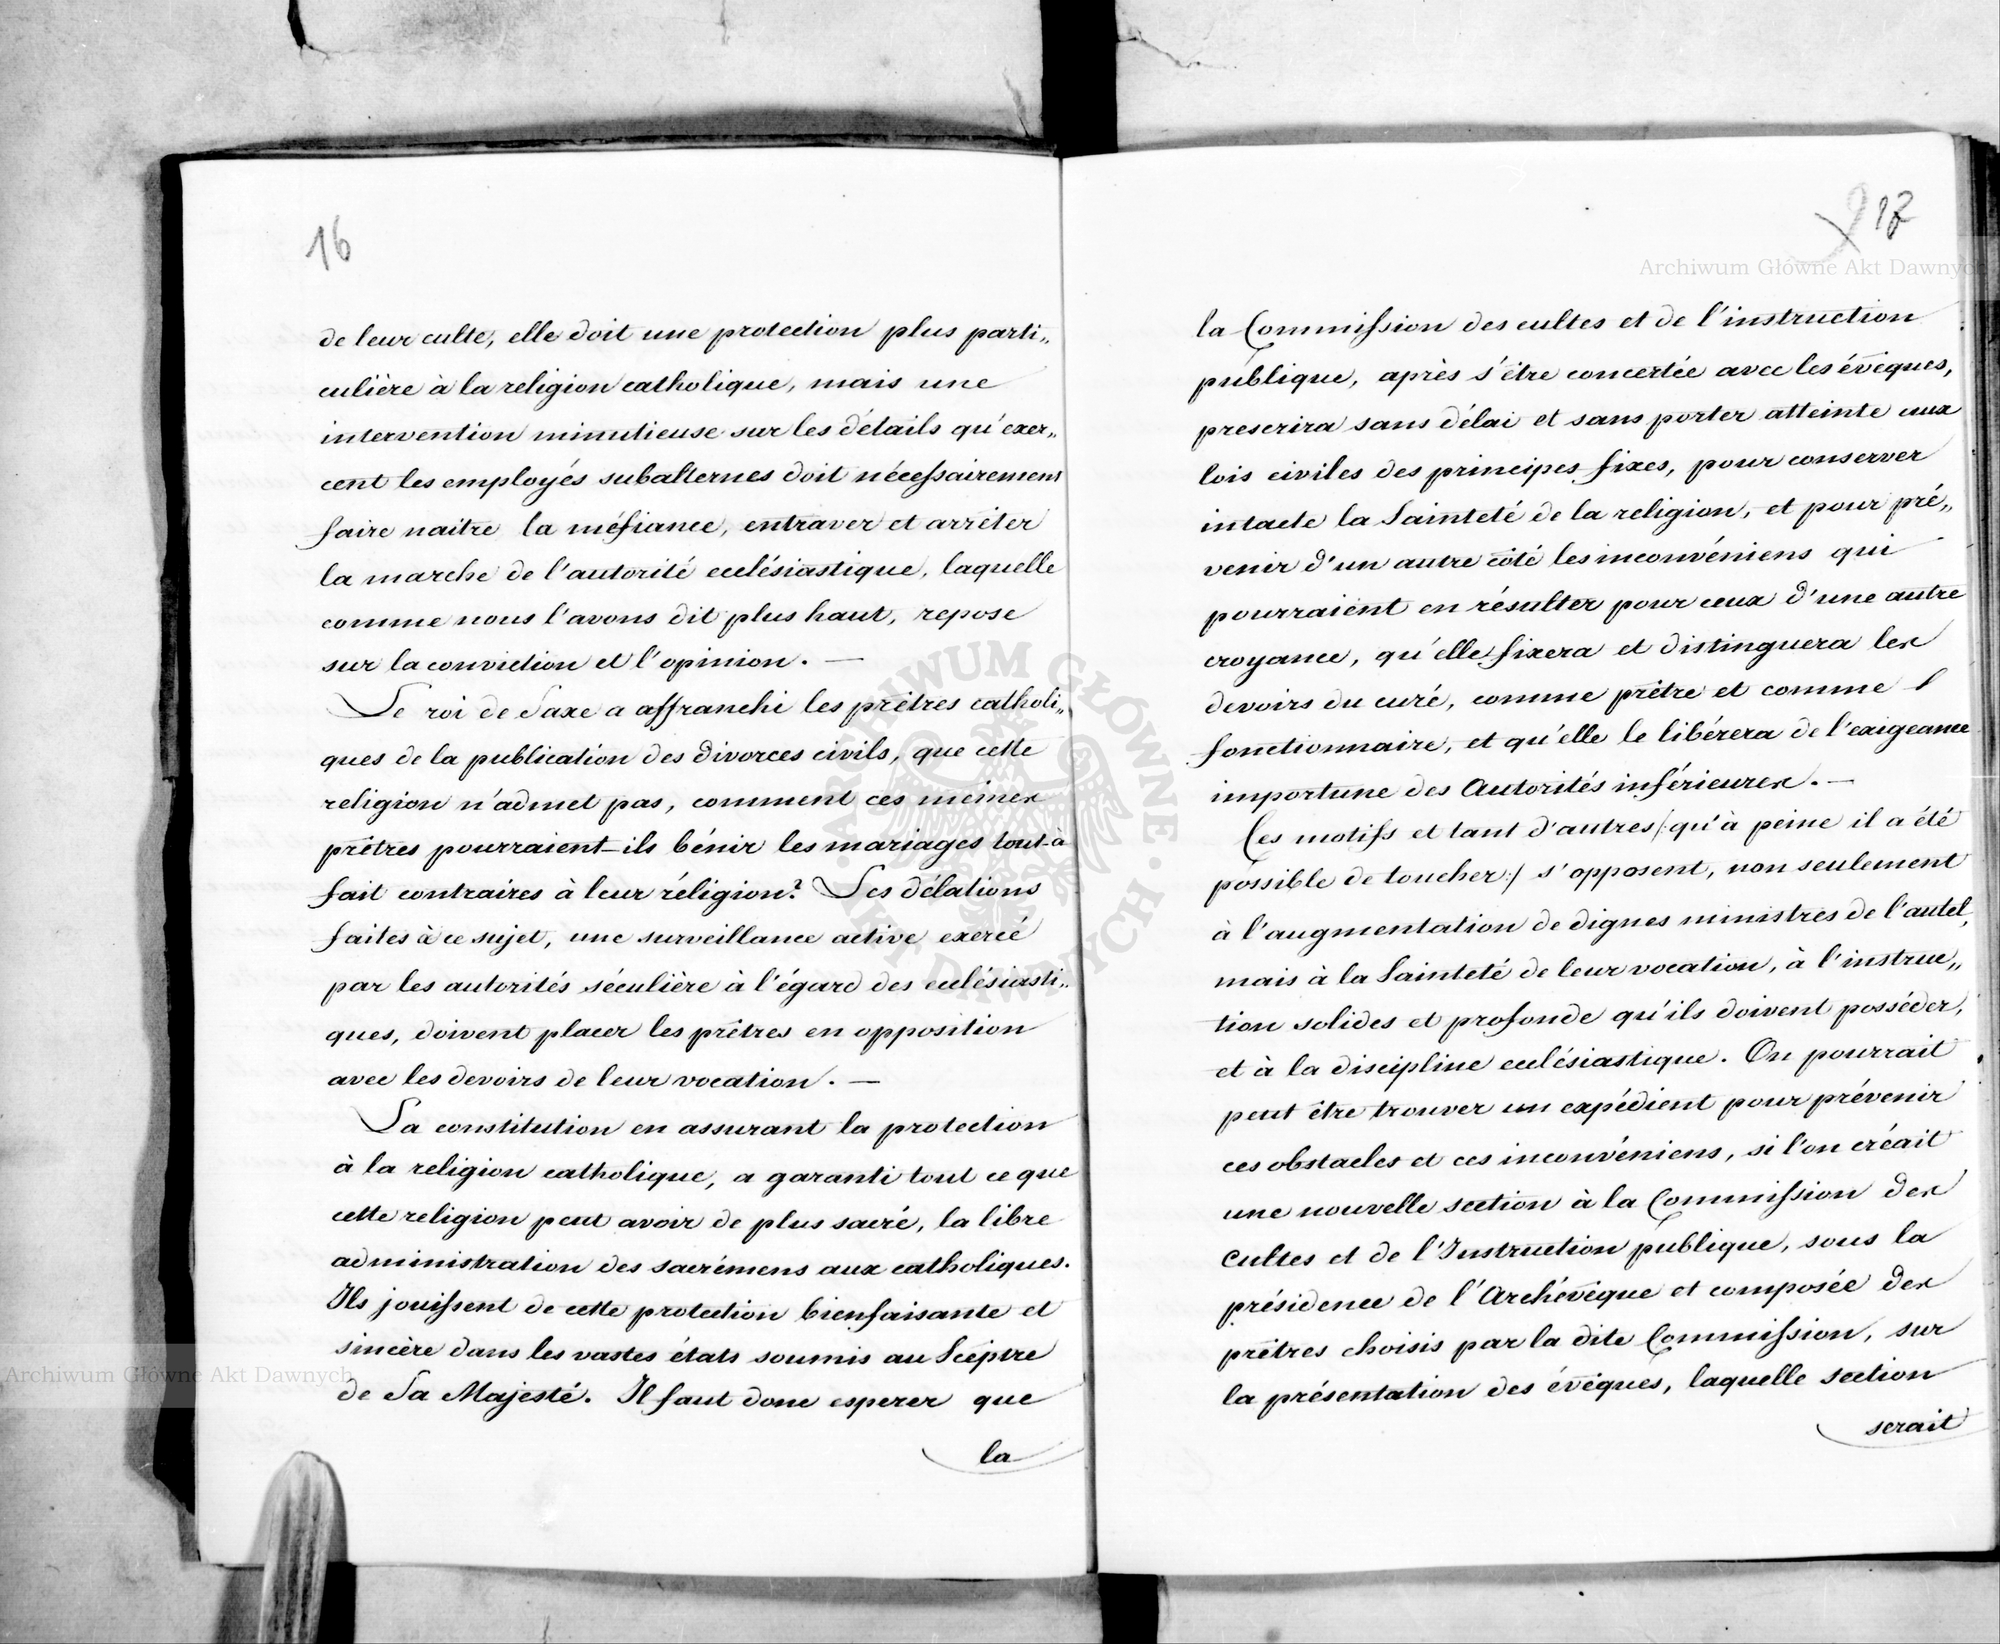 16
de leur culte, elle doit une protection plus parti„
culière à la religion catholique, mais une
intervention minutieuse sur les détails qu'exer„
cent les employés subalternes doit nécessairement
faire naitre la méfiance, entraver et arrêter
la marche de l'autorité eclésiastique, laquelle
comme nous l'avons dit plus haut, repose
sur la conviction et l'opinion. —
Le roi de Saxe a affranchi les prêtres catholi„
ques de la publication des divorces civils, que cette
religion n'admet pas, comment ces mêmes
prêtres pourraient-ils bénir les mariages tout-à
fait contraires à leur réligion? Les délations
faites à ce sujet, une surveillance active exercé
par les autorités séculière à l'égard des eclésiasti„
ques, doivent placer les prêtres en opposition
avec les devoirs de leur vocation. —
La constitution en assurant la protection
à la religion catholique, a garanti tout ce que
cette religion peut avoir de plus sacré, la libre
administration des sacrémens aux catholiques.
Ils jouissent de cette protection bienfaisante et
sincère dans les vastes états soumis au Sceptre
de Sa Majesté. Il faut donc esperer que
la
17
la Commission des cultes et de l'instruction
publique, après s'être concertée avec les évêques,
prescrira sans délai et sans porter atteinte aux
lois civiles des principes fixes, pour conserver
intacte la Sainteté de la religion, et pour pré„
venir d'un autre côté les inconvéniens qui
pourraient en résulter pour ceux d'une autre
croyance, qu'elle fixera et distinguera les
devoirs du curé, comme prêtre et comme
fonctionnaire, et qu'elle le libérera de l'exigeance
importune des Autorités inférieures. —
Ces motifs et tant d'autres /:qu'à peine il a été
possible de toucher:/ s'opposent, non seulement
à l'augmentation de dignes ministres de l'autel,
mais à la Sainteté de leur vocation, à l'instruc„
tion solides et profonde qu'ils doivent posséder,
et à la discipline eclésiastique. On pourrait
peut être trouver un expédient pour prévenir
ces obstacles et ces inconvéniens, si l'on créait
une nouvelle section à la Commission des
Cultes et de l'Instruction publique, sous la
présidence de l'Archévêque et composée des
prêtres choisis par la dite Commission, sur
la présentation des évêques, laquelle section
serait
Archiwum Główne Akt Dawnych
Archiwum Główne Akt Dawnych
ARCHIWUM GŁÓWNE · AKT DAWNYCH ·